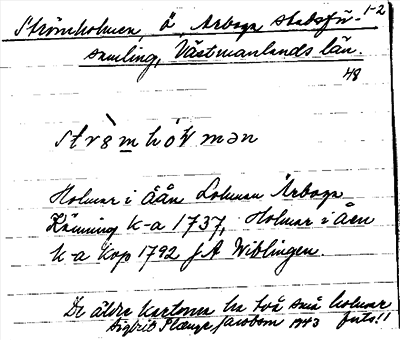 1-2
Strömholmen, ö, Arboga stadsför-
samling, Västmanlands län.
48
Holmar i åån Lohman Arboga
Känning k-a 1737, Holmar i åen
k-a kop 1792 J A Wiblingen.
De äldre kartorna ha två små holmar
Sigfrid Plange Jacobson 1943 forts!!